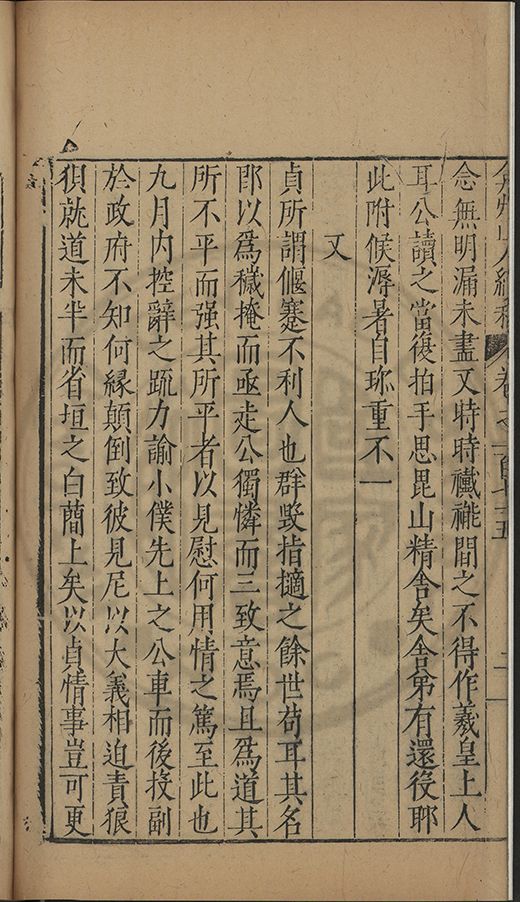 弇州山人續稿 卷之一百七十五 二
念無明漏未盡又時時襶襹間之不得作羲皇上人
耳公讀之當復拍手思毘山精舍矣舍弟有還役耶
此附候溽暑自珎重不一
又
貞所謂偃蹇不利人也群毀指擿之餘世苟耳其名
郎以爲穢掩而亟走公獨憐而三致意焉且爲道其
所不平而强其所平者以見慰何用情之篤至此也
九月内控辭之䟽力諭小僕先上之公車而後投副
於政府不知何縁顛倒致彼見尼以大義相迫責狼
狽就道未半而省垣之白蕳上矣以貞情事豈可更